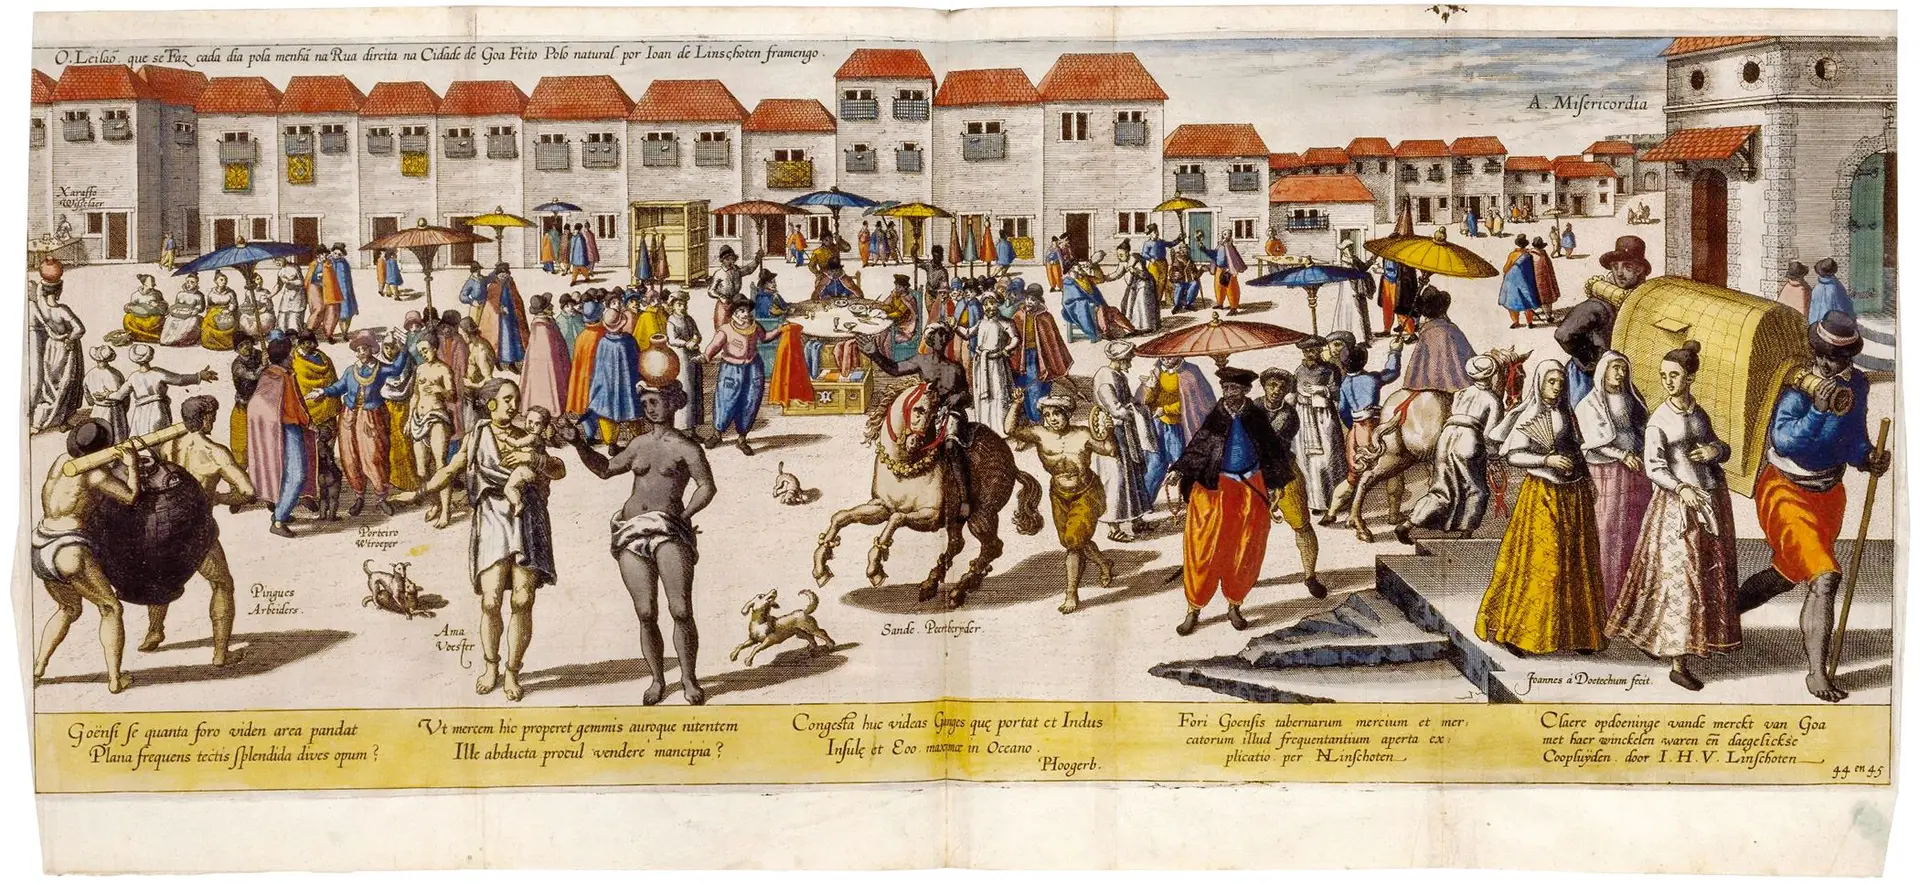 O. Leilaõ que se Faz cada dia pola menhã na Rua direita na Cidade de Goa Feito Polo natural por Ioan de Linschoten framengo.
A. Misericordia
Xaraffo
Wisselaer
Porteiro
Wtroeper
Pingues
Arbeiders.
Ama
Voester
Sande. Peerberyder.
Joannes à Doetechum fecit.
Goënsi se quanta foro viden area pandat
Plana frequens tectis splendida dives opum?
Vt mercem hic properet gemmis auroque nitentem
Ille abducta procul vendere mancipia?
Congesta huc videas Ganges quę portat et Indus
Insulę et Eoo maximae in Oceano.
Hoogerb.
Fori Goensis tabernarum mercium et mer:
catorum illud frequentantium aperta ex:
plicatio per Linschoten
Claere opdoeninge vande merckt van Goa
met haer winckelen waren eñ daegelickse
Coopluÿden door I. H. V. Linschoten
44 en 45